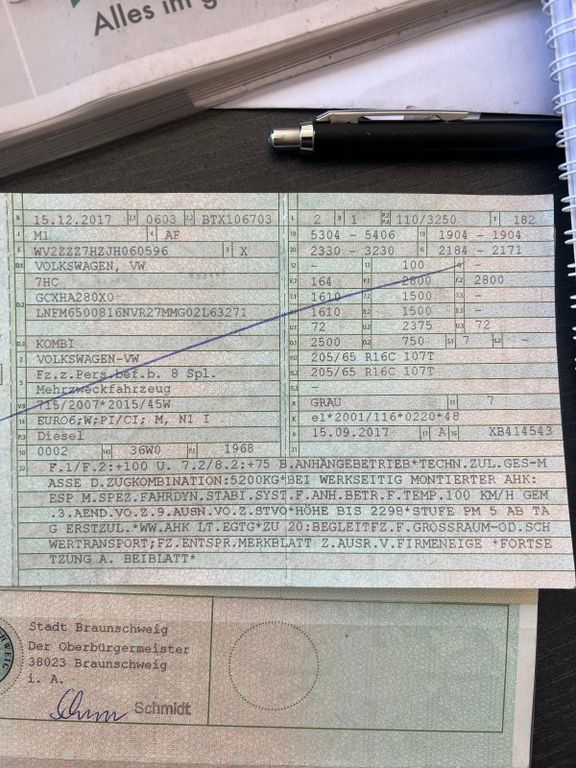 Alles im g
B 15.12.2017 2.1 0603 2.2 BTX106703 L 2 9 1 P.2 P.4 110/3250 T 182
J M1 4 AF 18 5304 - 5406 19 1904 - 1904
E WV2ZZZ7HZJH060596 3 X 20 2330 - 3230 G 2184 - 2171
D.1 VOLKSWAGEN, VW 12 - 13 100 Q -
7HC V.7 164 F.1 2800 F.2 2800
D.2 GCXHA280X0 7.1 1610 7.2 1500 7.3 -
LNFM6500816NVR27MMG02L63271 8.1 1610 8.2 1500 8.3 -
U.1 72 U.2 2375 U.3 72
D.3 KOMBI O.1 2500 O.2 750 S.1 7 S.2 -
2 VOLKSWAGEN-VW 15.1 205/65 R16C 107T
5 Fz.z.Pers.bef.b. 8 Spl. 15.2 205/65 R16C 107T
Mehrzweckfahrzeug 15.3 -
V.9 715/2007*2015/45W R GRAU 11 7
14 EURO6;W;PI/CI; M, N1 I K e1*2001/116*0220*48
P.3 Diesel 6 15.09.2017 17 A 16 XB414543
10 0002 14.1 36W0 P.1 1968 21
22 F.1/F.2:+100 U. 7.2/8.2:+75 B.ANHÄNGEBETRIEB*TECHN.ZUL.GES-M
ASSE D.ZUGKOMBINATION:5200KG*BEI WERKSEITIG MONTIERTER AHK:
ESP M.SPEZ.FAHRDYN.STABI.SYST.F.ANH.BETR.F.TEMP.100 KM/H GEM
.3.AEND.VO.Z.9.AUSN.VO.Z.STVO*HÖHE BIS 2298*STUFE PM 5 AB TA
G ERSTZUL.*WW.AHK LT.EGTG*ZU 20:BEGLEITFZ.F.GROSSRAUM-OD.SCH
WERTRANSPORT;FZ.ENTSPR.MERKBLATT Z.AUSR.V.FIRMENEIGE *FORTSE
TZUNG A. BEIBLATT*
Stadt Braunschweig
Der Oberbürgermeister
38023 Braunschweig
i. A.
Schmidt